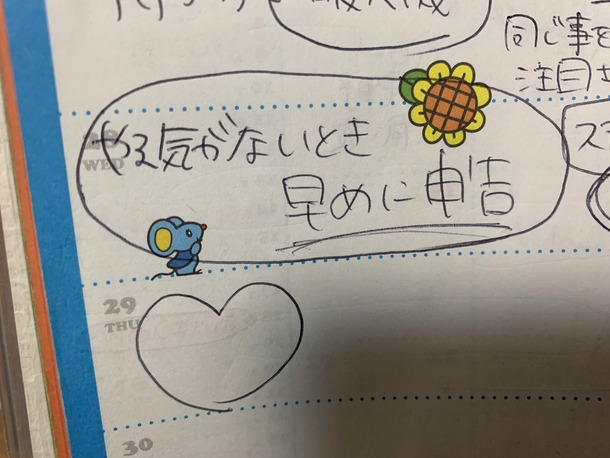 同じ事を
注目
28
WED
やる気がないとき
早めに申告
29
THU
30